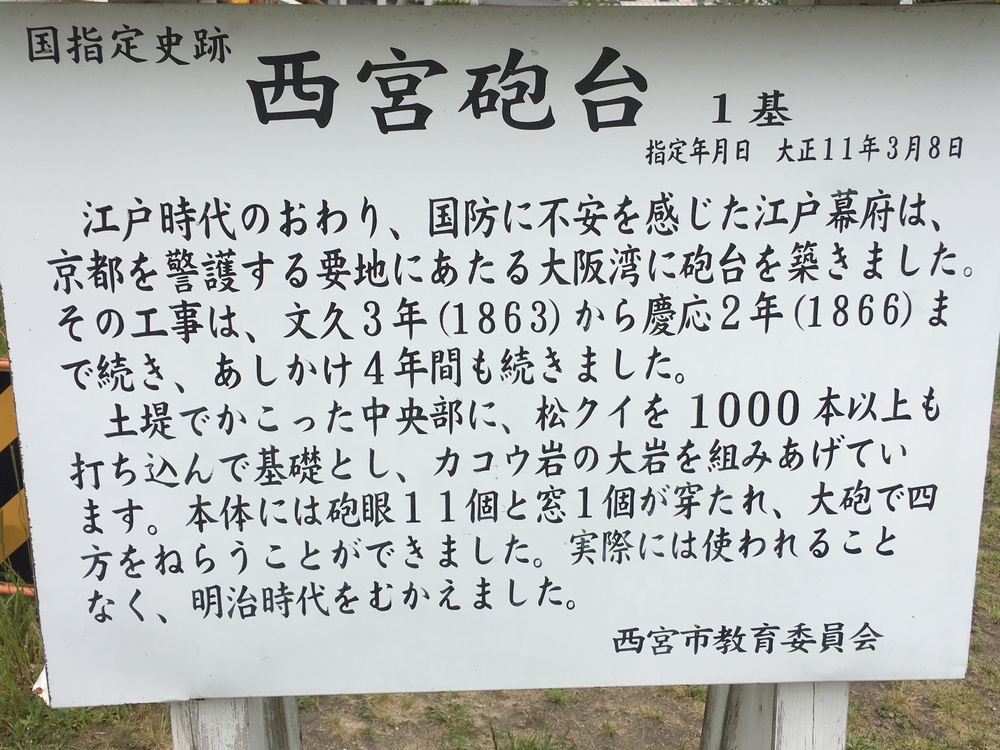 国指定史跡
西宮砲台 1基
指定年月日 大正11年3月8日
江戸時代のおわり、国防に不安を感じた江戸幕府は、
京都を警護する要地にあたる大阪湾に砲台を築きました。
その工事は、文久3年(1863)から慶応2年(1866)ま
で続き、あしかけ4年間も続きました。
土堤でかこった中央部に、松クイを1000本以上も
打ち込んで基礎とし、カコウ岩の大岩を組みあげてい
ます。本体には砲眼11個と窓1個が穿たれ、大砲で四
方をねらうことができました。実際には使われること
なく、明治時代をむかえました。
西宮市教育委員会